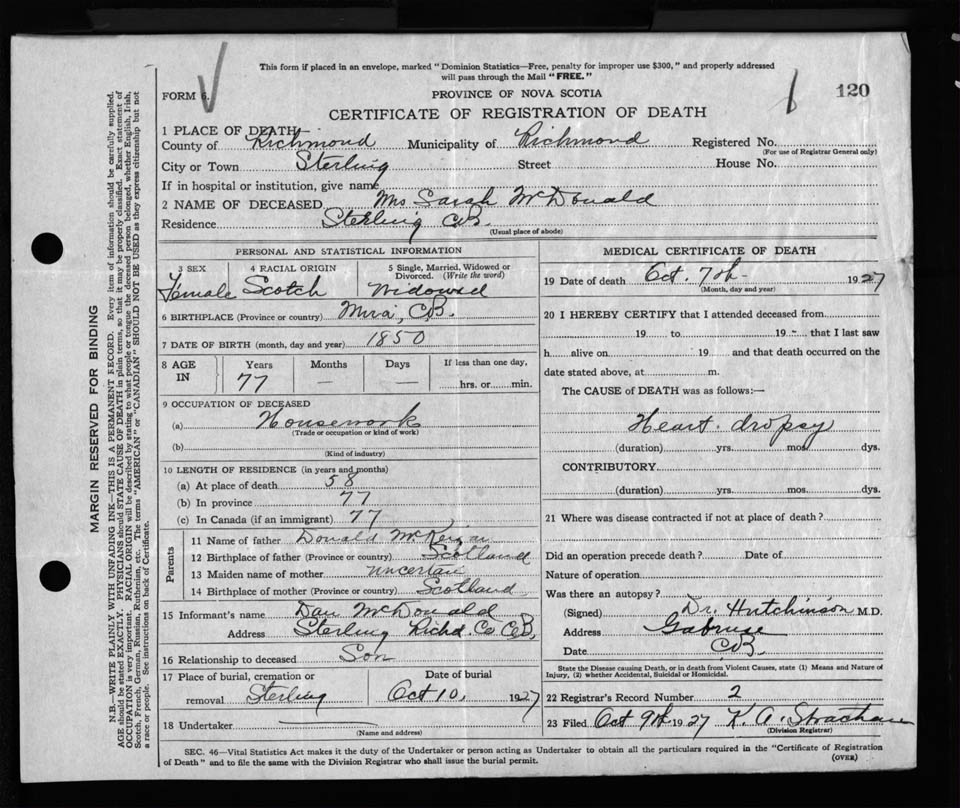 This form if placed in an envelope, marked "Dominion Statistics—Free, penalty for improper use $300," and properly addressed
will pass through the Mail "FREE."
FORM 6.
PROVINCE OF NOVA SCOTIA
120
CERTIFICATE OF REGISTRATION OF DEATH
1 PLACE OF DEATH—
County of Richmond Municipality of Richmond Registered No.
(For use of Registrar General only)
City or Town Sterling Street House No.
If in hospital or institution, give name
2 NAME OF DECEASED Mrs Sarah McDonald
Residence Sterling C.B.
(Usual place of abode)
PERSONAL AND STATISTICAL INFORMATION
3 SEX 4 RACIAL ORIGIN 5 Single, Married, Widowed or
Divorced. (Write the word)
Female Scotch Widowed
6 BIRTHPLACE (Province or country) Mira, C.B.
7 DATE OF BIRTH (month, day and year) 1850
8 AGE IN Years Months Days If less than one day,
77 — — hrs. or min.
9 OCCUPATION OF DECEASED
(a) Housework
(Trade or occupation or kind of work)
(b)
(Kind of industry)
10 LENGTH OF RESIDENCE (in years and months)
(a) At place of death 58
(b) In province 77
(c) In Canada (if an immigrant) 77
Parents
11 Name of father Donald
12 Birthplace of father (Province or country) Scotland
13 Maiden name of mother uncertain
14 Birthplace of mother (Province or country) Scotland
15 Informant's name Dan McDonald
Address Sterling Richd. Co. C.B.
16 Relationship to deceased Son
17 Place of burial, cremation or Date of burial
removal Sterling Oct 10 1927
18 Undertaker
(Name and address)
MEDICAL CERTIFICATE OF DEATH
19 Date of death Oct. 7th 1927
(Month, day and year)
20 I HEREBY CERTIFY that I attended deceased from
19 to 19 that I last saw
h alive on 19 and that death occurred on the
date stated above, at m.
The CAUSE of DEATH was as follows:—
Heart dropsy
(duration) yrs. mos. dys.
CONTRIBUTORY
(duration) yrs. mos. dys.
21 Where was disease contracted if not at place of death?
Did an operation precede death? Date of
Nature of operation
Was there an autopsy?
(Signed) Dr. Hutchinson M.D.
Address Gabruse
Date C.B.
State the Disease causing Death, or in death from Violent Causes, state (1) Means and Nature of
Injury, (2) whether Accidental, Suicidal or Homicidal.
22 Registrar's Record Number 2
23 Filed Oct 9th 1927 K. A. Strachan
(Division Registrar)
SEC. 46—Vital Statistics Act makes it the duty of the Undertaker or person acting as Undertaker to obtain all the particulars required in the "Certificate of Registration
of Death" and to file the same with the Division Registrar who shall issue the burial permit.
(OVER)
MARGIN RESERVED FOR BINDING
N.B.—WRITE PLAINLY WITH UNFADING INK—THIS IS A PERMANENT RECORD. Every item of information should be carefully supplied.
AGE should be stated EXACTLY. PHYSICIANS should STATE CAUSE OF DEATH in plain terms, so that it may be properly classified. Exact statement of
OCCUPATION is very important. RACIAL ORIGIN will be described by stating to what people or tongue the deceased person belonged, whether English, Irish,
Scotch, French, German, Russian, Ruthenian, etc. The terms "AMERICAN" or "CANADIAN" SHOULD NOT BE USED as they express citizenship but not
a race or people. See instructions on back of Certificate.